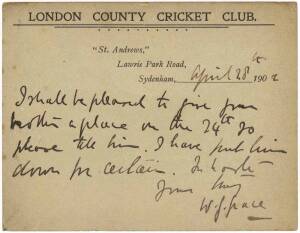 LONDON COUNTY CRICKET CLUB.
"St. Andrews,"
Lawrie Park Road,
Sydenham, April 28th 1902
I shall be pleased to give your
brother a place on the 24th so
please tell him. I have put him
down for certain. In haste
Yours truly
W. G. Grace